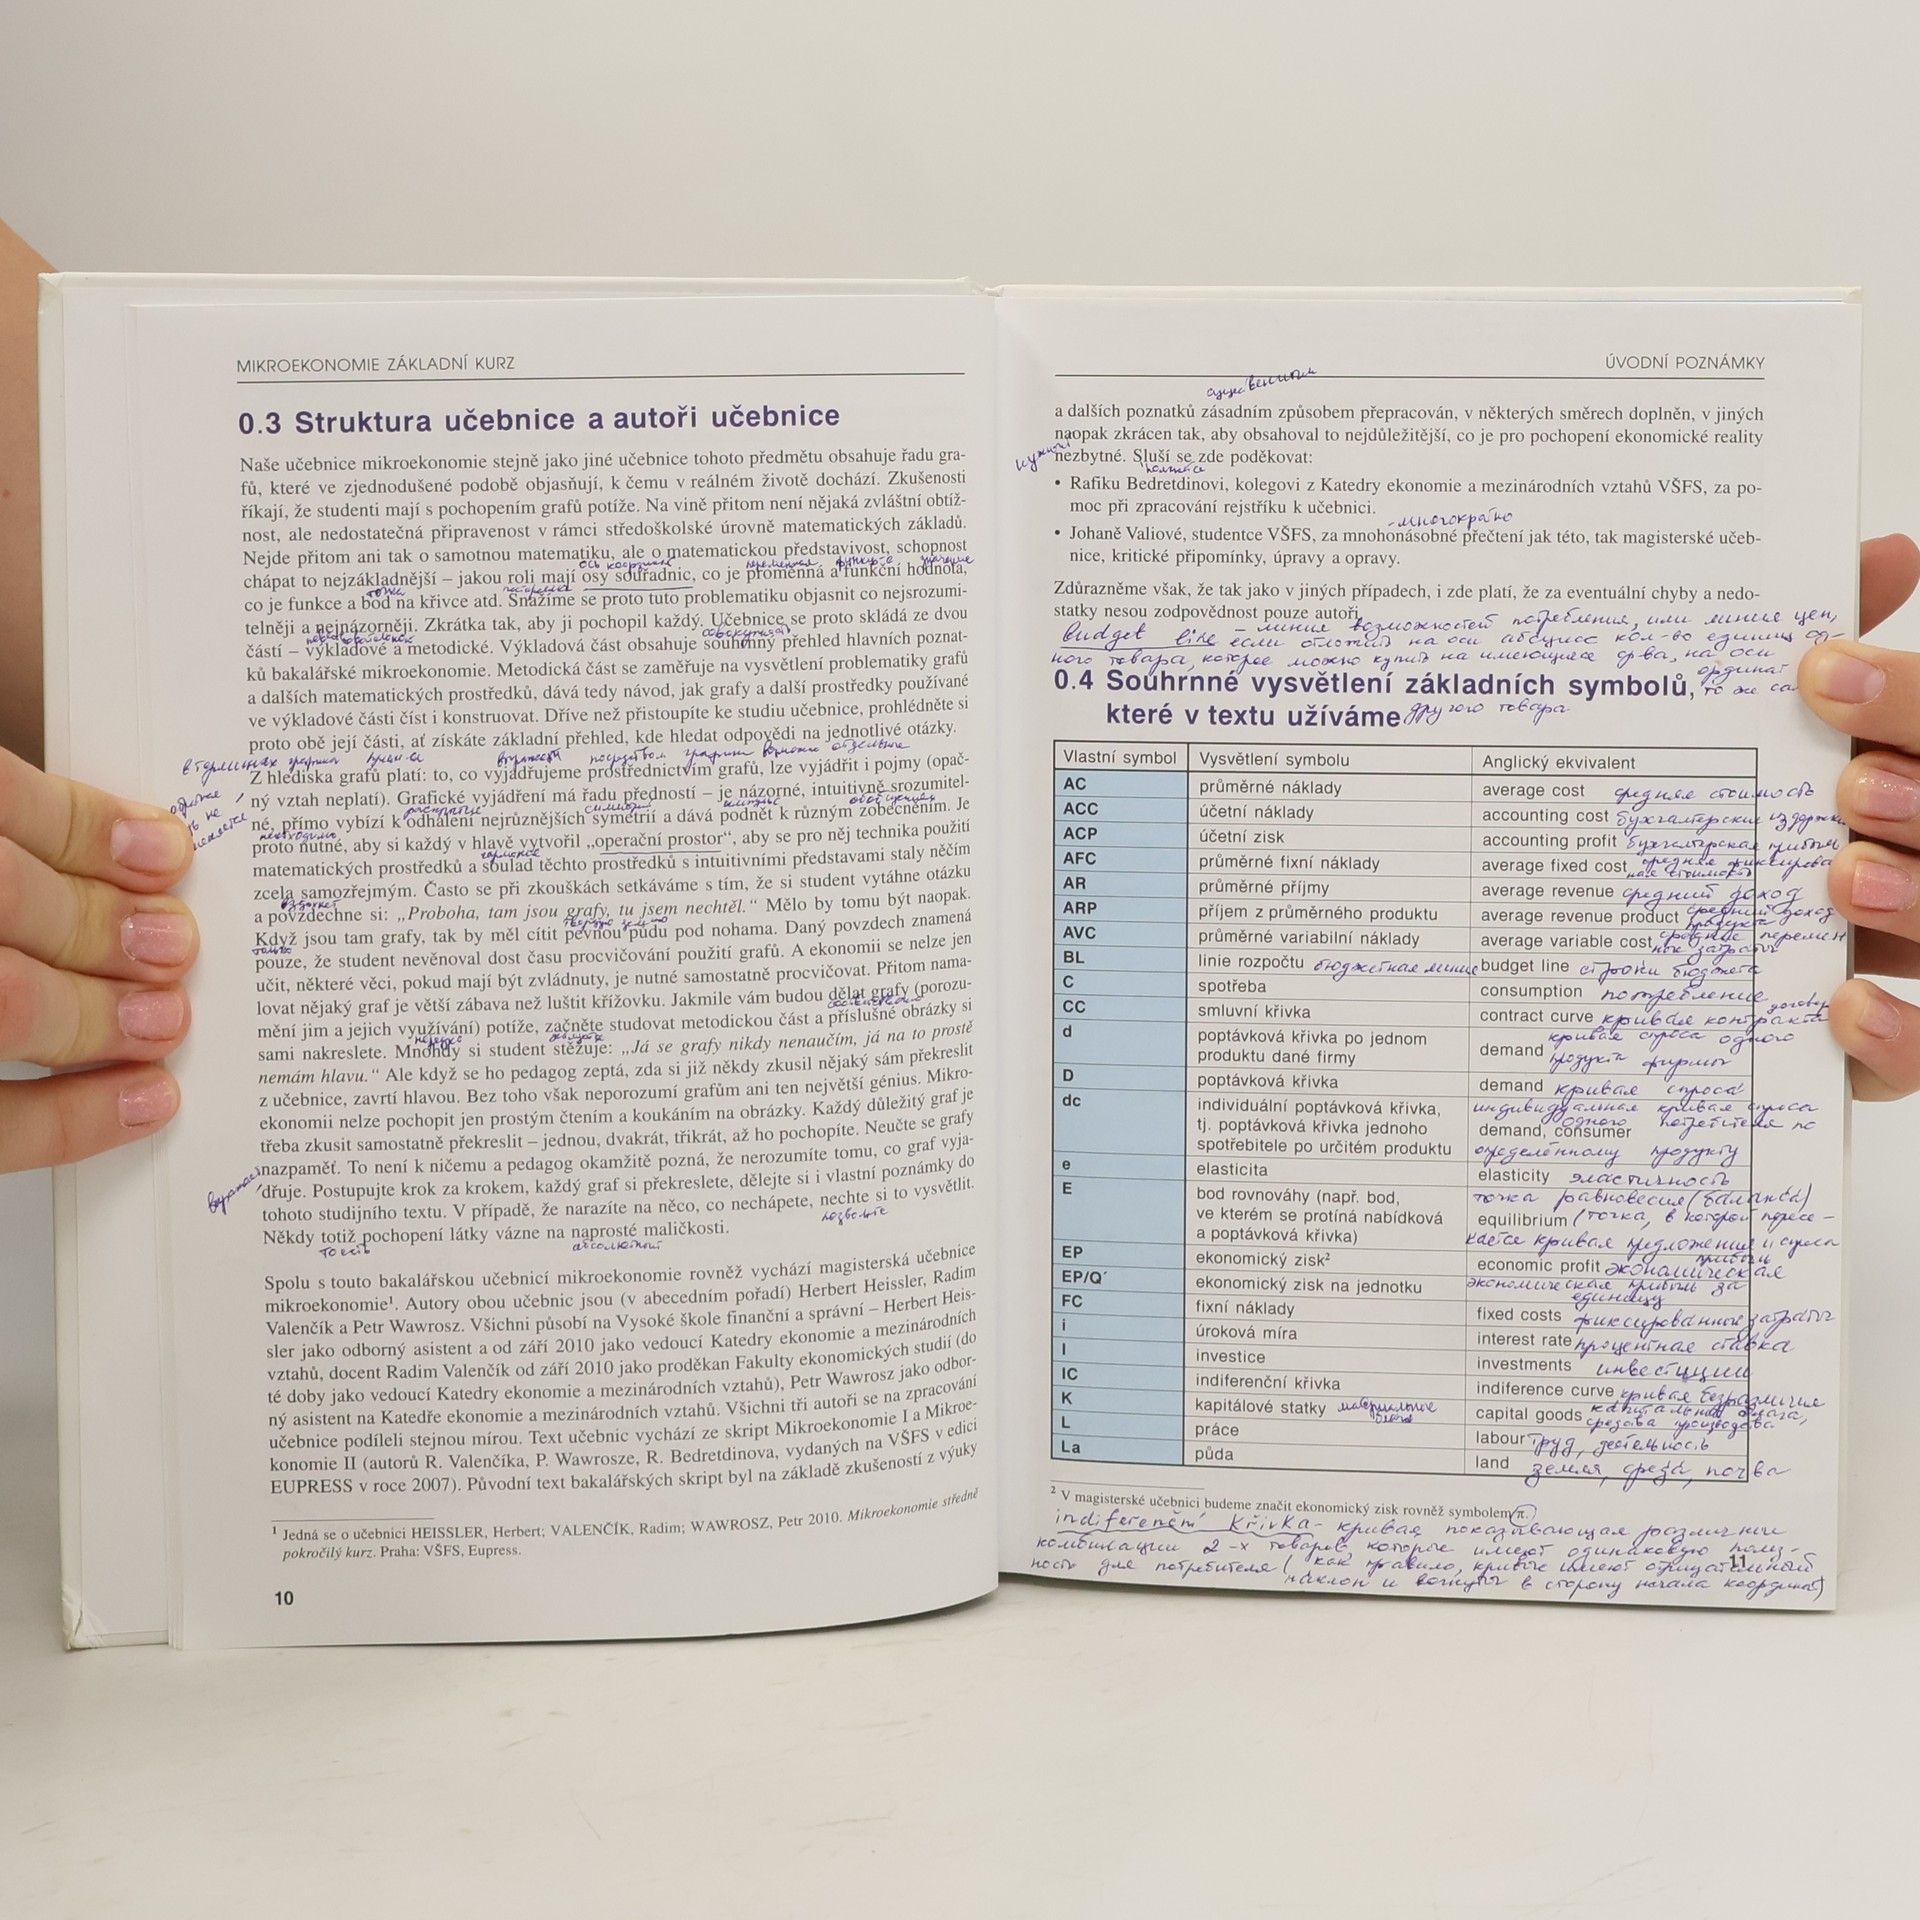 MIKROEKONOMIE ZÁKLADNÍ KURZ
0.3 Struktura učebnice a autoři učebnice
Naše učebnice mikroekonomie stejně jako jiné učebnice tohoto předmětu obsahuje řadu gra-
fů, které ve zjednodušené podobě objasňují, k čemu v reálném životě dochází. Zkušenosti
říkají, že studenti mají s pochopením grafů potíže. Na vině přitom není nějaká zvláštní obtíž-
nost, ale nedostatečná připravenost v rámci středoškolské úrovně matematických základů.
Nejde přitom ani tak o samotnou matematiku, ale o matematickou představivost, schopnost
ось координат переменная функц-я значение
chápat to nejzákladnější – jakou roli mají osy souřadnic, co je proměnná a funkční hodnota,
точка
co je funkce a bod na křivce atd. Snažíme se proto tuto problematiku objasnit co nejsrozumi-
telněji a nejnázorněji. Zkrátka tak, aby ji pochopil každý. Učebnice se proto skládá ze dvou
částí – výkladové a metodické. Výkladová část obsahuje souhrnný přehled hlavních poznat-
ků bakalářské mikroekonomie. Metodická část se zaměřuje na vysvětlení problematiky grafů
a dalších matematických prostředků, dává tedy návod, jak grafy a další prostředky používané
ve výkladové části číst i konstruovat. Dříve než přistoupíte ke studiu učebnice, prohlédněte si
proto obě její části, ať získáte základní přehled, kde hledat odpovědi na jednotlivé otázky.
в терминах графика посредством
Z hlediska grafů platí: to, co vyjádřujeme prostřednictvím grafů, lze vyjádřit i pojmy (opač-
ný vztah neplatí). Grafické vyjádření má řadu předností – je názorné, intuitivně srozumitel-
né, přímo vybízí k odhalení nejrůznějších symetrií a dává podnět k různým zobecněním. Je
необходимо
proto nutné, aby si každý v hlavě vytvořil „operační prostor“, aby se pro něj technika použití
matematických prostředků a soulad těchto prostředků s intuitivními představami staly něčím
zcela samozřejmým. Často se při zkouškách setkáváme s tím, že si student vytáhne otázku
a povzdechne si: „Proboha, tam jsou grafy, tu jsem nechtěl.“ Mělo by tomu být naopak.
Když jsou tam grafy, tak by měl cítit pevnou půdu pod nohama. Daný povzdech znamená
только
pouze, že student nevěnoval dost času procvičování použití grafů. A ekonomii se nelze jen
učit, některé věci, pokud mají být zvládnuty, je nutné samostatně procvičovat. Přitom nama-
lovat nějaký graf je větší zábava než luštit křížovku. Jakmile vám budou dělat grafy (porozu-
mění jim a jejich využívání) potíže, začněte studovat metodickou část a příslušné obrázky si
sami nakreslete. Mnohdy si student stěžuje: „Já se grafy nikdy nenaučím, já na to prostě
nemám hlavu.“ Ale když se ho pedagog zeptá, zda si již někdy zkusil nějaký sám překreslit
z učebnice, zavrtí hlavou. Bez toho však neporozumí grafům ani ten největší génius. Mikro-
ekonomii nelze pochopit jen prostým čtením a koukáním na obrázky. Každý důležitý graf je
třeba zkusit samostatně překreslit – jednou, dvakrát, třikrát, až ho pochopíte. Neučte se grafy
nazpaměť. To není k ničemu a pedagog okamžitě pozná, že nerozumíte tomu, co graf vyja-
dřuje. Postupujte krok za krokem, každý graf si překreslete, dělejte si i vlastní poznámky do
tohoto studijního textu. V případě, že narazíte na něco, co nechápete, nechte si to vysvětlit.
позвольте
Někdy totiž pochopení látky vázne na naprosté maličkosti.
то есть абсолютной
Spolu s touto bakalářskou učebnicí mikroekonomie rovněž vychází magisterská učebnice
mikroekonomie¹. Autory obou učebnic jsou (v abecedním pořadí) Herbert Heissler, Radim
Valenčík a Petr Wawrosz. Všichni působí na Vysoké škole finanční a správní – Herbert Heis-
sler jako odborný asistent a od září 2010 jako vedoucí Katedry ekonomie a mezinárodních
vztahů, docent Radim Valenčík od září 2010 jako proděkan Fakulty ekonomických studií (do
té doby jako vedoucí Katedry ekonomie a mezinárodních vztahů), Petr Wawrosz jako odbor-
ný asistent na Katedře ekonomie a mezinárodních vztahů. Všichni tři autoři se na zpracování
učebnice podíleli stejnou mírou. Text učebnic vychází ze skript Mikroekonomie I a Mikroe-
konomie II (autorů R. Valenčíka, P. Wawrosze, R. Bedretdinova, vydaných na VŠFS v edici
EUPRESS v roce 2007). Původní text bakalářských skript byl na základě zkušeností z výuky
¹ Jedná se o učebnici HEISSLER, Herbert; VALENČÍK, Radim; WAWROSZ, Petr 2010. Mikroekonomie středně
pokročilý kurz. Praha: VŠFS, Eupress.
10
ÚVODNÍ POZNÁMKY
существенным
a dalších poznatků zásadním způsobem přepracován, v některých směrech doplněn, v jiných
naopak zkrácen tak, aby obsahoval to nejdůležitější, co je pro pochopení ekonomické reality
nezbytné. Sluší se zde poděkovat:
• Rafiku Bedretdinovi, kolegovi z Katedry ekonomie a mezinárodních vztahů VŠFS, za po-
moc při zpracování rejstříku k učebnici.
многократно
• Johaně Valiové, studentce VŠFS, za mnohonásobné přečtení jak této, tak magisterské učeb-
nice, kritické připomínky, úpravy a opravy.
Zdůrazněme však, že tak jako v jiných případech, i zde platí, že za eventuální chyby a nedo-
statky nesou zodpovědnost pouze autoři.
– линия возможностей потребления, или линия цен,
budget line если отложить на оси абсцисс кол-во единиц од-
ного товара, которое можно купить на имеющиеся ср-ва, на оси
ординат
0.4 Souhrnné vysvětlení základních symbolů, то же
které v textu užíváme другого товара
Vlastní symbol Vysvětlení symbolu Anglický ekvivalent
AC průměrné náklady average cost средняя стоимость
ACC účetní náklady accounting cost бухгалтерские издержки
ACP účetní zisk accounting profit бухгалтерская прибыль
AFC průměrné fixní náklady average fixed cost средняя фиксирован
ная стоимость
AR průměrné příjmy average revenue средний доход
ARP příjem z průměrného produktu average revenue product средний доход
продукта
AVC průměrné variabilní náklady average variable cost средние перемен
ные затраты
BL linie rozpočtu бюджетная линия budget line строки бюджета
C spotřeba consumption потребление
CC smluvní křivka contract curve кривая контракта
d poptávková křivka po jednom produktu dané firmy demand кривая спроса одного
продукта фирмы
D poptávková křivka demand кривая спроса
dc individuální poptávková křivka, индивидуальная кривая спроса
tj. poptávková křivka jednoho demand, consumer одного потребителя по
spotřebitele po určitém produktu определённому продукту
e elasticita elasticity эластичность
E bod rovnováhy (např. bod, точка равновесия (баланса)
ve kterém se protíná nabídková equilibrium (точка, в которой пересе-
a poptávková křivka) кается кривая предложения и спроса
EP ekonomický zisk² economic profit экономическая прибыль
EP/Q´ ekonomický zisk na jednotku экономическая прибыль за
единицу
FC fixní náklady fixed costs фиксированные затраты
i úroková míra interest rate процентная ставка
I investice investments инвестиции
IC indiferenční křivka indiference curve кривая безразличия
K kapitálové statky capital goods капитальные блага,
средства производства
L práce labour труд, деятельность
La půda land земля, среда, почва
² V magisterské učebnici budeme značit ekonomický zisk rovněž symbolem π.
indiferenční křivka – кривая показывающая различные
комбинации 2-х товаров которые имеют одинаковую полез-
ность для потребителя (как правило, кривые имеют отрицательный
наклон и вогнуты в сторону начала координат)
11